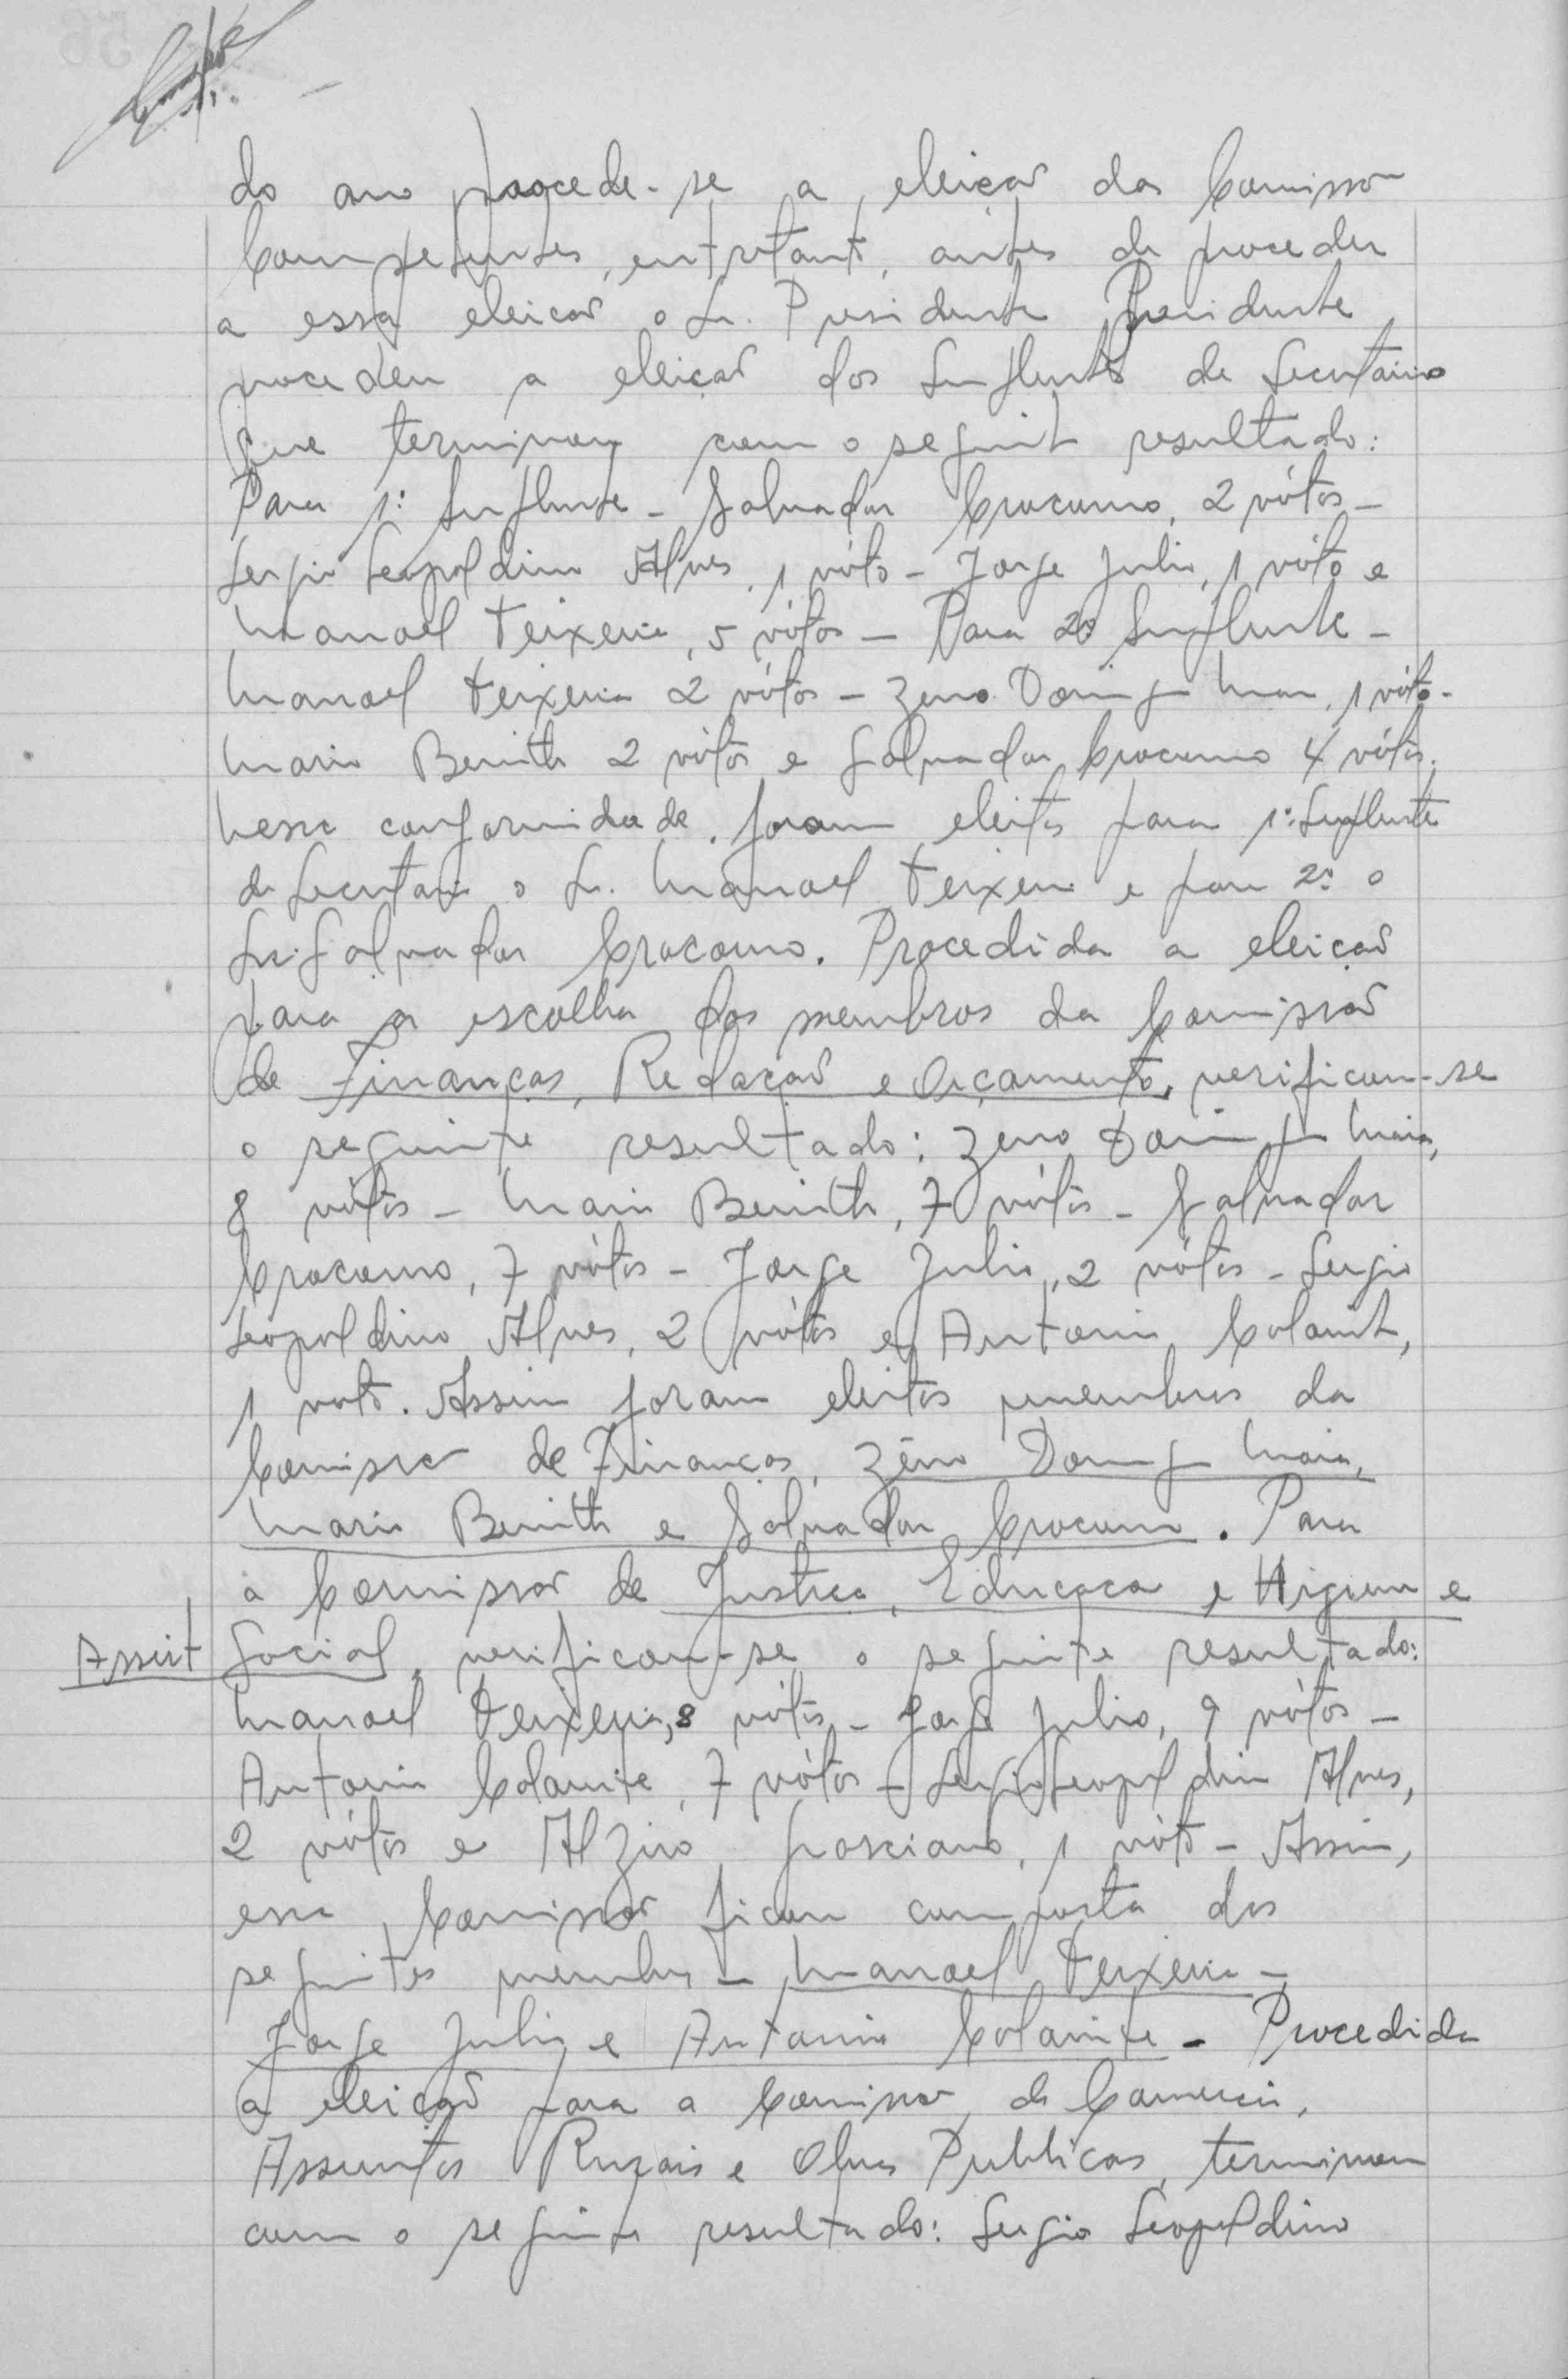 do ano procede-se a eleição das Comissão
Competentes, entretanto, antes de proceder
a essa eleição o Sr. Presidente Presidente
procedeu a eleição dos Suplentes de Secretarios
que terminou com o seguinte resultado:
Para 1º Suplente - Salvador Cracomo, 2 vótos -
Sergio Leopoldino Alves, 1 vóto - Jorge Julio, 1 vóto e
Manoel Teixeira, 5 vótos - Para 2º Suplente -
Manoel Teixeira 2 vótos - Zeno Maia, 1 vóto -
Mario Benith 2 vótos e Salvador Cracomo 4 vótos.
Nessa conformidade, foram eleitos para 1º Suplente
de Secretario o Sr. Manoel Teixeira e para 2º o
Sr. Salvador Cracomo. Procedida a eleição
para a escolha dos membros da Comissão
de Finanças, Redação e Orçamento, verificou-se
o seguinte resultado: Zeno Maia,
8 vótos - Mario Benith, 7 vótos - Salvador
Cracomo, 7 vótos - Jorge Julio, 2 vótos - Sergio
Leopoldino Alves, 2 vótos e Antonio Colamite,
1 voto. Assim foram eleitos membros da
Comissão de Finanças, Zeno Maia,
Mario Benith e Salvador Cracomo. Para
a Comissão de Justiça, Educação e Higiene e
Assist Social, verificou-se o seguinte resultado:
Manoel Teixeira, 8 vótos - Jorge Julio, 9 vótos -
Antonio Colamite, 7 vótos - Sergio Leopoldino Alves,
2 vótos e Alziro, 1 vóto - Assim,
essa Comissão ficou composta dos
seguintes membros - Manoel Teixeira -
Jorge Julio e Antonio Colamite - Procedida
a eleição para a Comissão de Comercio,
Assuntos Rurais e Obras Publicas, terminou
com o seguinte resultado: Sergio Leopoldino